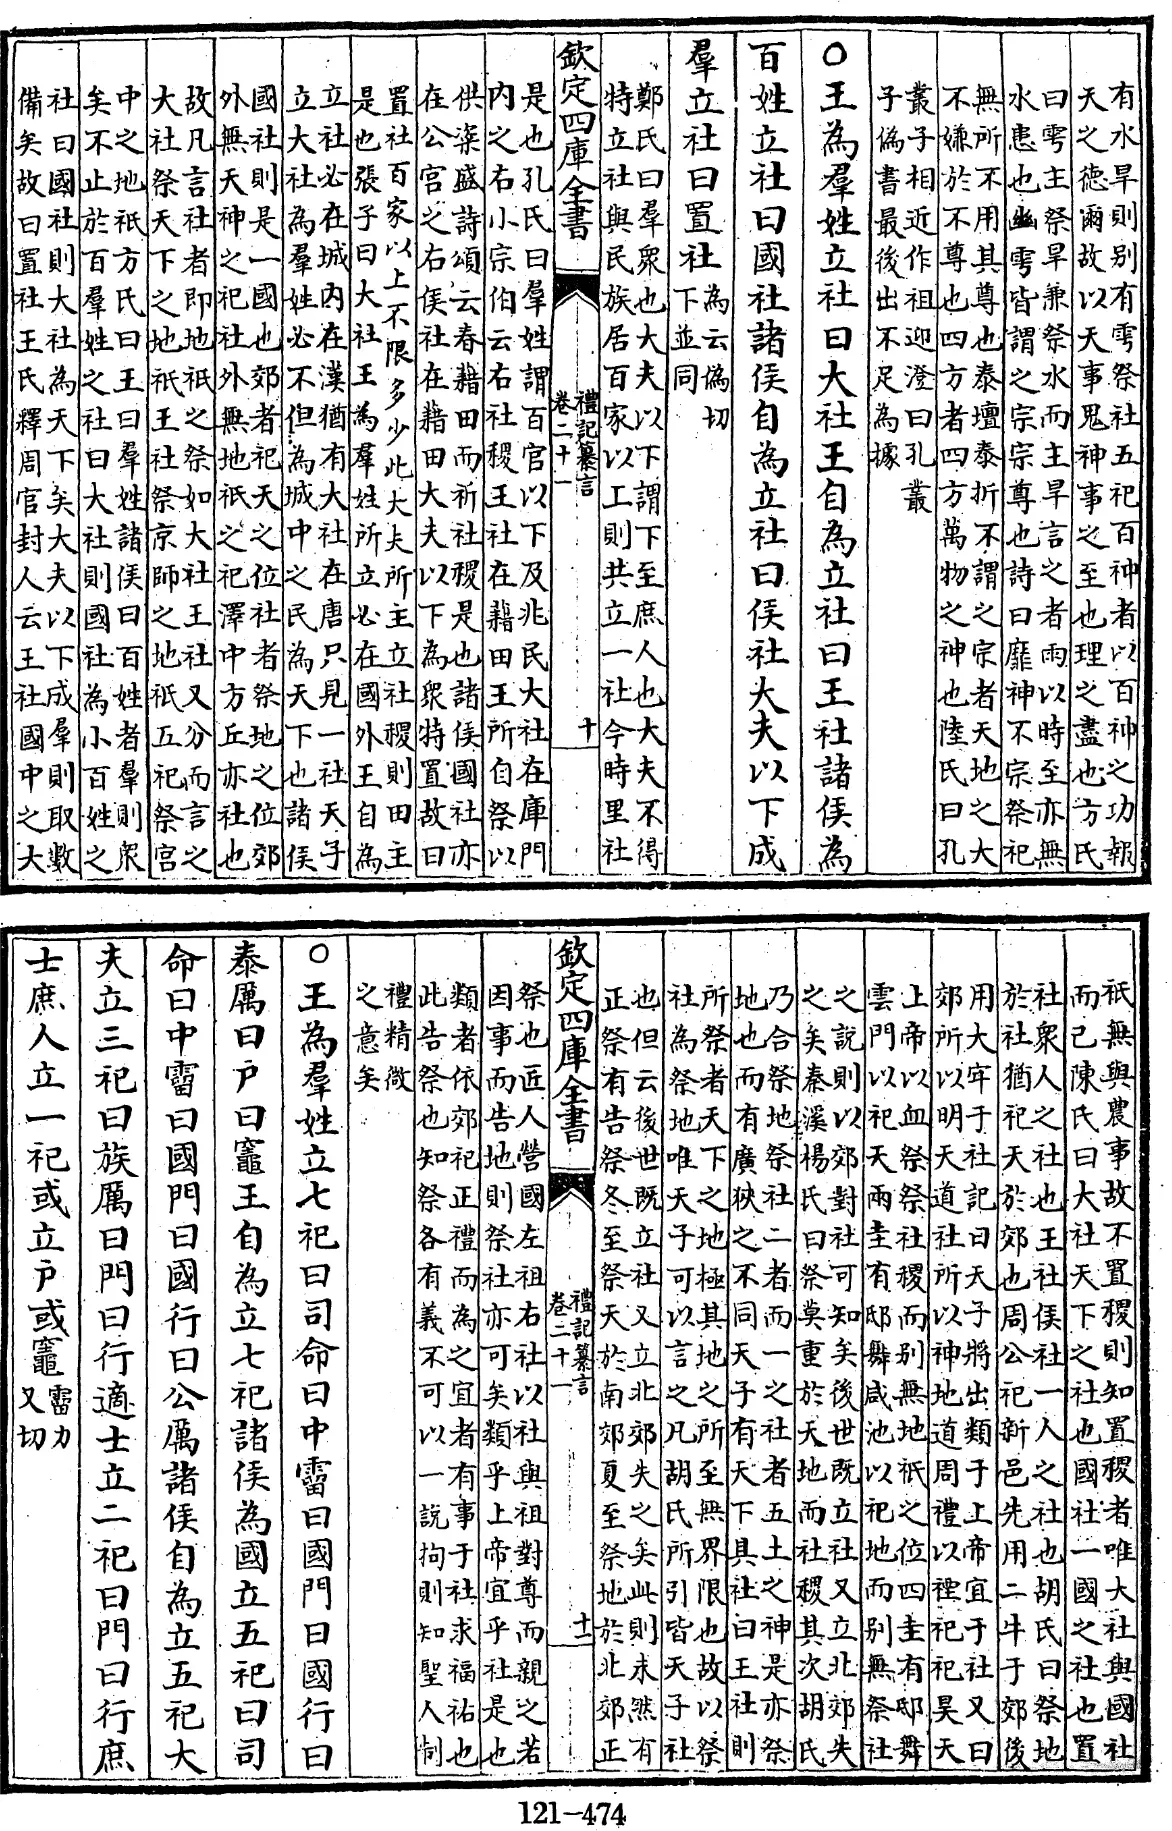 有水旱則别有雩祭社五祀百神者以百神之功報
天之徳爾故以天事鬼神事之至也理之盡也方氏
曰雩主祭旱兼祭水而主旱言之者雨以時至亦無
水患也幽雩皆謂之宗宗尊也詩曰靡神不宗祭祀
無所不用其尊也泰壇泰折不謂之宗者天地之大
不嫌於不尊也四方者四方萬物之神也陸氏曰孔
叢子相近作祖迎澄曰孔叢
子偽書最後出不足為據
○王為羣姓立社曰大社王自為立社曰王社諸侯為
百姓立社曰國社諸侯自為立社曰侯社大夫以下成
羣立社曰置社為云偽切
下並同
鄭氏曰羣衆也大夫以下謂下至庶人也大夫不得
特立社與民族居百家以上則共立一社今時里社
欽定四庫全書
禮記纂言
卷二十一
十
是也孔氏曰羣姓謂百官以下及兆民大社在庫門
内之右小宗伯云右社稷王社在藉田王所自祭以
供粢盛詩頌云春藉田而祈社稷是也諸侯國社亦
在公宫之右侯社在藉田大夫以下為衆特置故曰
置社百家以上不限多少此大夫所主立社稷則田主
是也張子曰大社王為羣姓所立必在國外王自為
立社必在城内在漢猶有大社在唐只見一社天子
立大社為羣姓必不但為城中之民為天下也諸侯
國社則是一國也郊者祀天之位社者祭地之位郊
外無天神之祀社外無地祇之祀澤中方丘亦社也
故凡言社者即地祇之祭如大社王社又分而言之
大社祭天下之地祇王社祭京師之地祇五祀祭宫
中之地祇方氏曰王曰羣姓諸侯曰百姓者羣則衆
矣不止於百羣姓之社曰大社則國社為小百姓之
社曰國社則大社為天下矣大夫以下成羣則取數
備矣故曰置社王氏釋周官封人云王社國中之大
祇無與農事故不置稷則知置稷者唯大社與國社
而已陳氏曰大社天下之社也國社一國之社也置
社衆人之社也王社侯社一人之社也胡氏曰祭地
於社猶祀天於郊也周公祀新邑先用二牛于郊後
用大牢于社記曰天子將出類于上帝宜于社又曰
郊所以明天道社所以神地道周禮以禋祀祀昊天
上帝以血祭祭社稷而别無地祇之位四圭有邸舞
雲門以祀天兩圭有邸舞咸池以祀地而别無祭社
之說則以郊對社可知矣後世既立社又立北郊失
之矣秦溪楊氏曰祭莫重於天地而社稷其次胡氏
乃合祭地祭社二者而一之社者五土之神是亦祭
地也而有廣狹之不同天子有天下其社曰王社則
所祭者天下之地極其地之所至無界限也故以祭
社為祭地唯天子可以言之凡胡氏所引皆天子社
也但云後世既立社又立北郊失之矣此則未然有
正祭有告祭冬至祭天於南郊夏至祭地於北郊正
欽定四庫全書
禮記纂言
卷二十一
十一
祭也匠人營國左祖右社以社與祖對尊而親之若
因事而告地則祭社亦可矣類乎上帝宜乎社是也
類者依郊祀正禮而為之宜者有事于社求福祐也
此告祭也知祭各有義不可以一説拘則知聖人制
禮精微
之意矣
○王為羣姓立七祀曰司命曰中霤曰國門曰國行曰
泰厲曰戶曰竈王自為立七祀諸侯為國立五祀曰司
命曰中霤曰國門曰國行曰公厲諸侯自為立五祀大
夫立三祀曰族厲曰門曰行適士立二祀曰門曰行庶
士庶人立一祀或立戶或竈霤力
又切
121-474